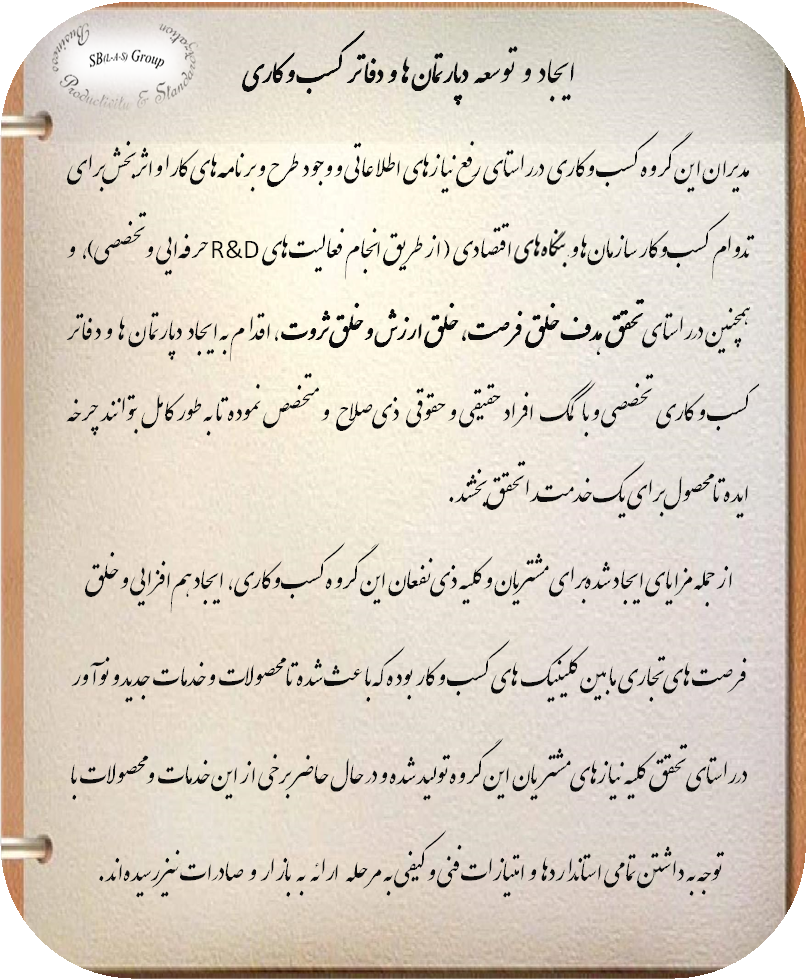 SB(L-A-S) Group
Business
Standardization
Productivity & 
ایجاد و توسعه دپارتمان ها و دفاتر کسب و کاری
مدیران این گروه کسب و کاری در راستای رفع نیازهای اطلاعاتی و وجود طرح و برنامه های کارا و اثربخش برای
تدوام کسب و کار سازمان ها و بنگاه های اقتصادی (از طریق انجام فعالیت های R&D حرفه ایی و تخصصی)، و
همچنین در راستای تحقق هدف خلق فرصت، خلق ارزش و خلق ثروت، اقدام به ایجاد دپارتمان ها و دفاتر
کسب و کاری تخصصی و با کمک افراد حقیقی و حقوقی ذی صلاح و متخصص نموده تا به طور کامل بتوانند چرخه
ایده تا محصول برای یک خدمت را تحقق بخشد.
از جمله مزایای ایجاد شده برای مشتریان و کلیه ذی نفعان این گروه کسب و کاری، ایجاد هم افزایی و خلق
فرصت های تجاری مابین کلینیک های کسب و کار بوده که باعث شده تا محصولات و خدمات جدید و نوآور
در راستای تحقق کلیه نیازهای مشتریان این گروه تولید شده و در حال حاضر برخی از این خدمات و محصولات با
توجه به داشتن تمامی استانداردها و امتیازات فنی و کیفی به مرحله ارائه به بازار و صادرات نیز رسیده اند.